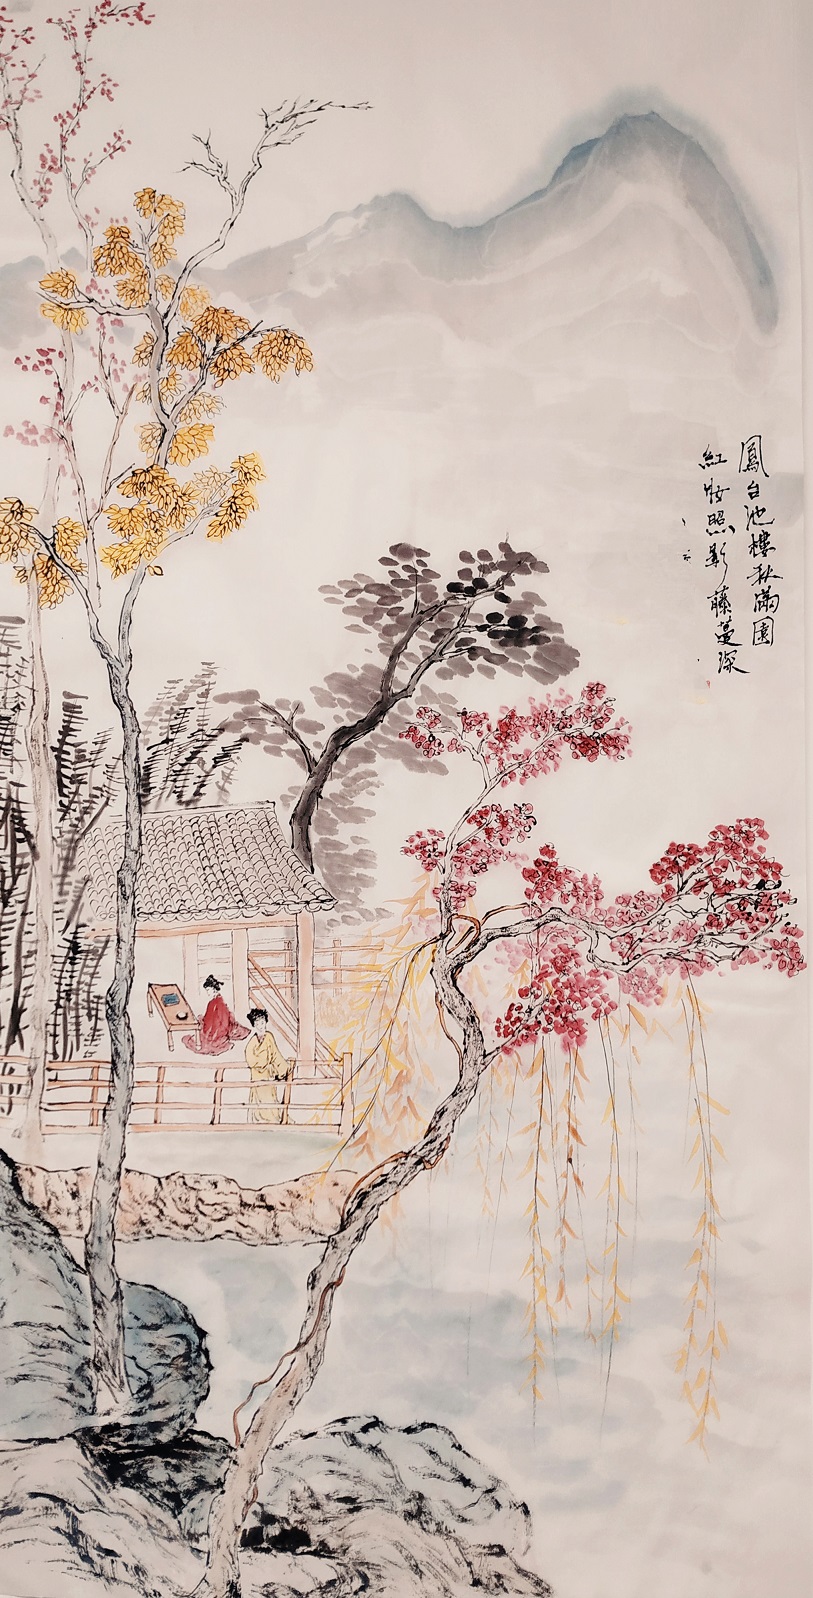 鳳台池樓秋滿園
紅妝照影藤蔓深